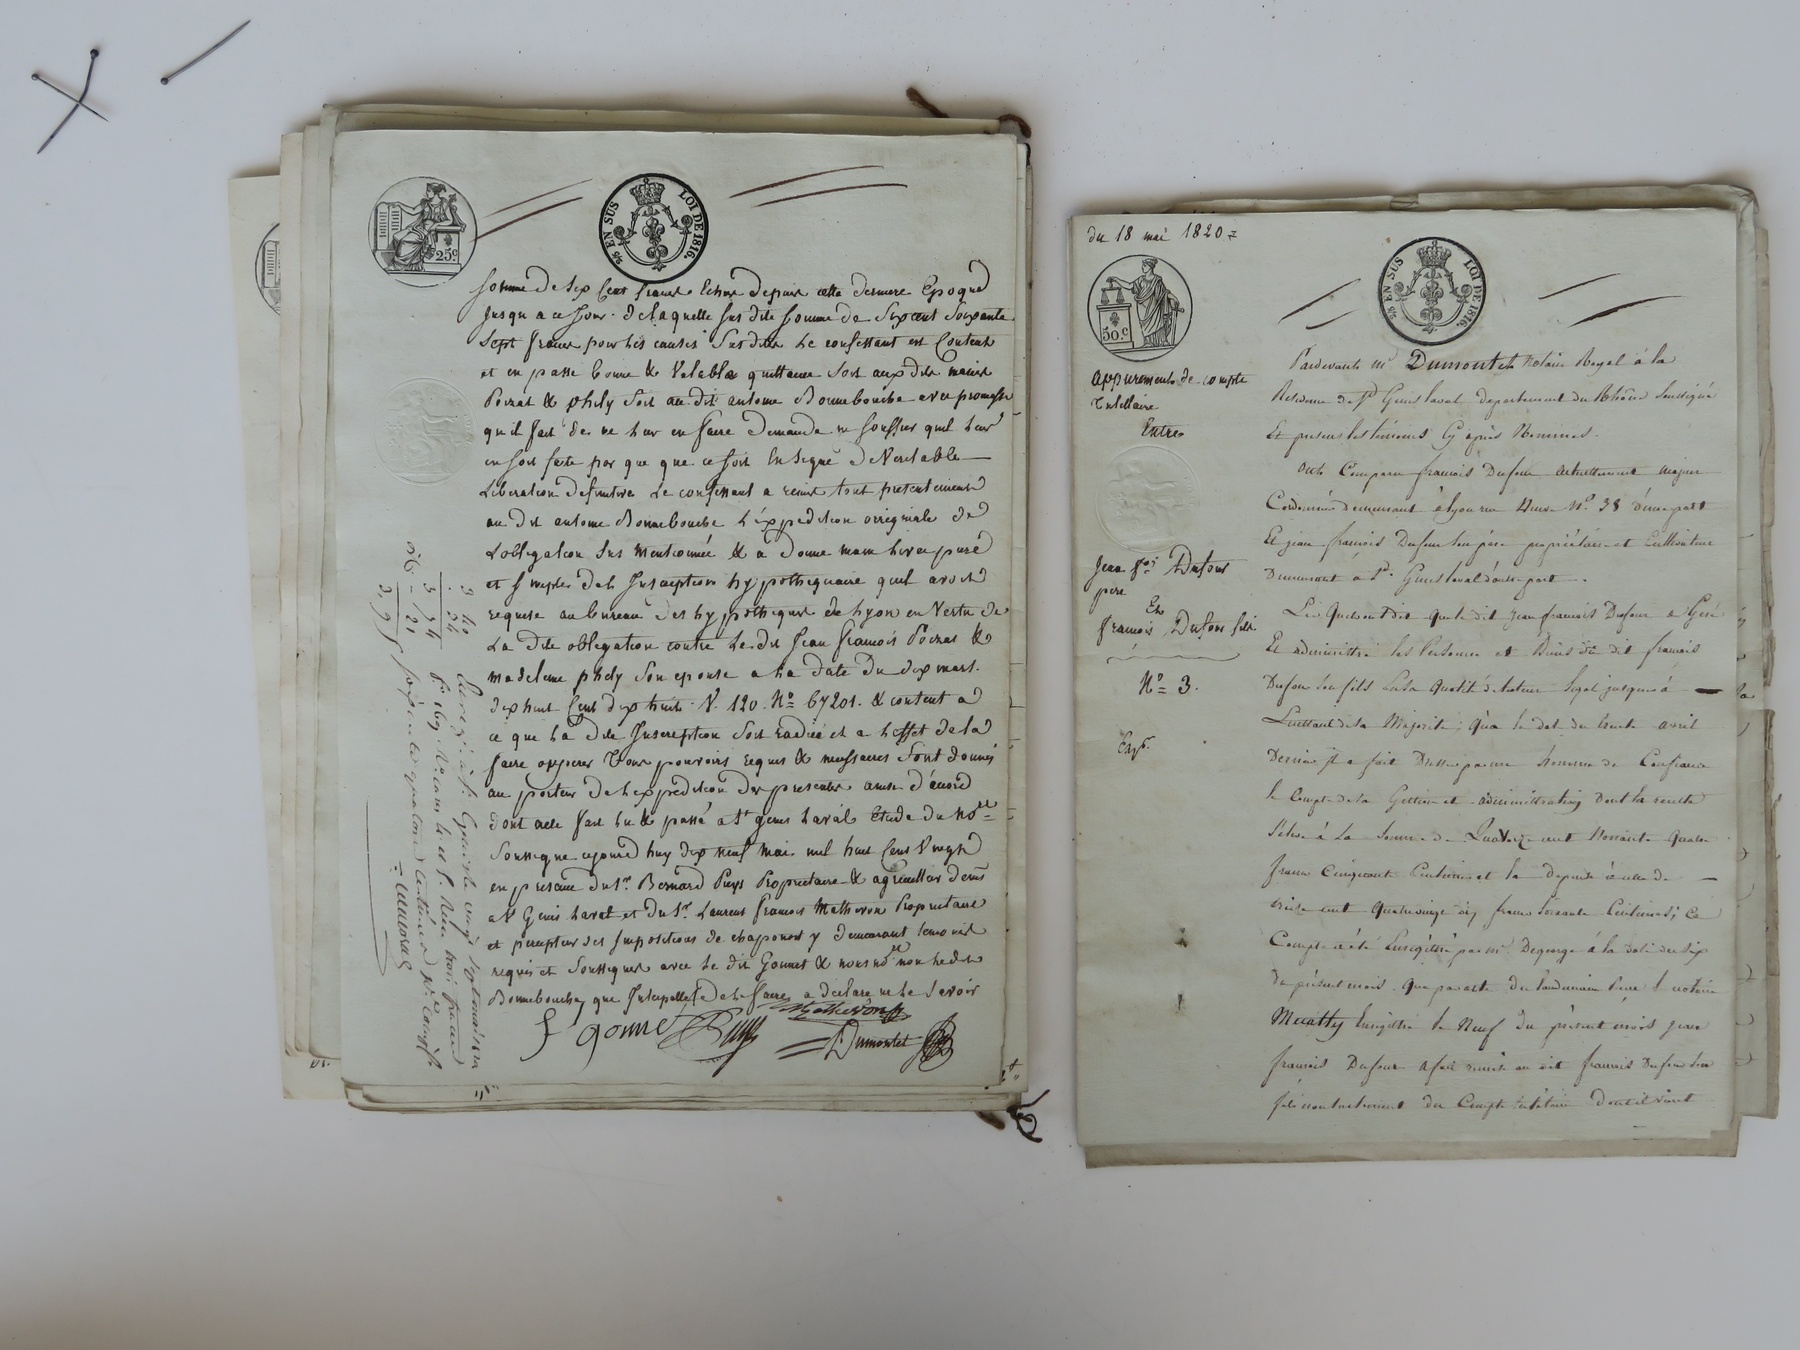 25 EN SUS LOI DE 1816.
25c
somme de Six Cent francs Echue depuis cette derniere Epoque
jusqu a ce jour. de laquelle sus dite somme de Sixcent Soixante
Sept francs pour les causes Susdites Le confessant est Content
et en passe bonne & Valable quittance Soit aux dits mariés
Poizat & phily Soit au dit antoine Bonnebouche avec promesse
qu il fait de ne leur en faire demande ne souffrir quil leur
en soit faite par qui que ce soit En Signe de Veritable
Liberation definitive Le confessant a remis tout presentement
au dit antoine Bonnebouche L'éxpedition originale de
Lobligation sus mentionnée & a donné main levée pure
et simple de L Inscription hypothequaire quil avoit
requise au bureau des hypotheques de Lyon en Vertu de
La dite obligation contre Le dit Jean françois Poizat &
madelaine phily Son epouse a La date du dix mars.
dix huit Cent dix huit. V. 120. No 67201. & consent a
ce que La dite Inscription Soit radiée et a L'effet de la
faire opperer Tous pouvoirs requis & necessaires Sont donnés
au porteur de L expedition des presentes
dont acte fait Lu & passé a St genis Laval Etude du nore
Soussigné cejourd huy dix neuf mai mil huit Cent Vingt
en presence du Sr. Bernard Puys Propriétaire & agriculteur demt
a St Genis Laval et du Sr. Laurent françois Matheron Propriétaire
et percepteur des Impositions de chaponost y demeurant temoins
requis et Soussignés avec Le dit Gonnet & nous nore non Ledit
Bonnebouche que Interpellé de Le faire a declaré ne Le Savoir
f gonnet Puys Matheron
Dumontet
3 40
34
3 74
du 18 mai 1820
25 EN SUS LOI DE 1816.
50.c
Appurements de compte
Tutellaire
Entre
Jean fois Dufour
pere
Et
françois Dufour fils.
No 3.
Exp.
Pardevant Me Dumontet notaire Royal à la
Residence de St Genis laval departement du Rhône Soussigné
Et presens les témoins Cy après Nommés.
Ont Comparu françois Dufour actuellement majeur
Cordonnier demeurant à Lyon rue No. 38 d'une part
Et jean françois Dufour Son père propriétaire et Cultivateur
Demeurant à St. Genis laval d'autre part.
Lesquels ont dit que le dit jean françois Dufour a Geré
Et administré les Personne et Biens du dit françois
Dufour Son fils En Sa Qualité de tuteur legal jusques à
L'instant de sa Majorité; Qu'a la date du trente avril
Dernier Il a fait Dresser par un homme de Confiance
le Compte de sa Gestion et administration dont la recette
S'eleve à la Somme de Quatorze cent Nonante Quatre
francs Cinquante Centimes et la depense à celle de
treize cent Quatrevingt dix francs Soixante Centimes; Ce
Compte a été Enregistré par Mr. Degeorge à la date du Six
du présent mois. Que par acte du lendemain Reçu le notaire
Enregistré le Neuf du présent mois jean
françois Dufour a fait remise au dit françois Dufour Son
fils du Compte